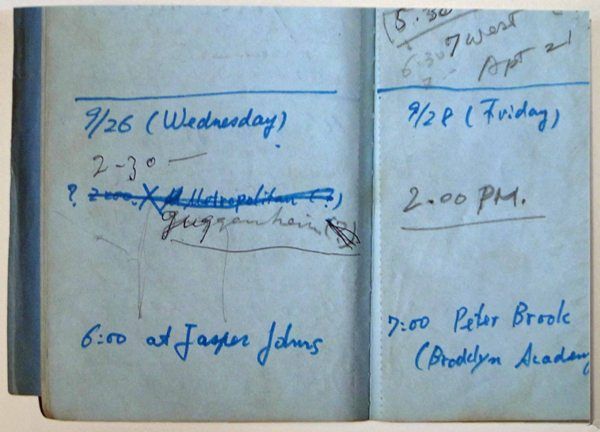 9/26 (Wednesday)
2-30 —
? 2:00 X M Metropolitan (?)
guggenheim (?)
6:00 at Jasper Johns
5.30
6.30 7 West
Apt 21
9/28 (Friday)
2.00 PM.
7:00 Peter Brook
(Brooklyn Academy